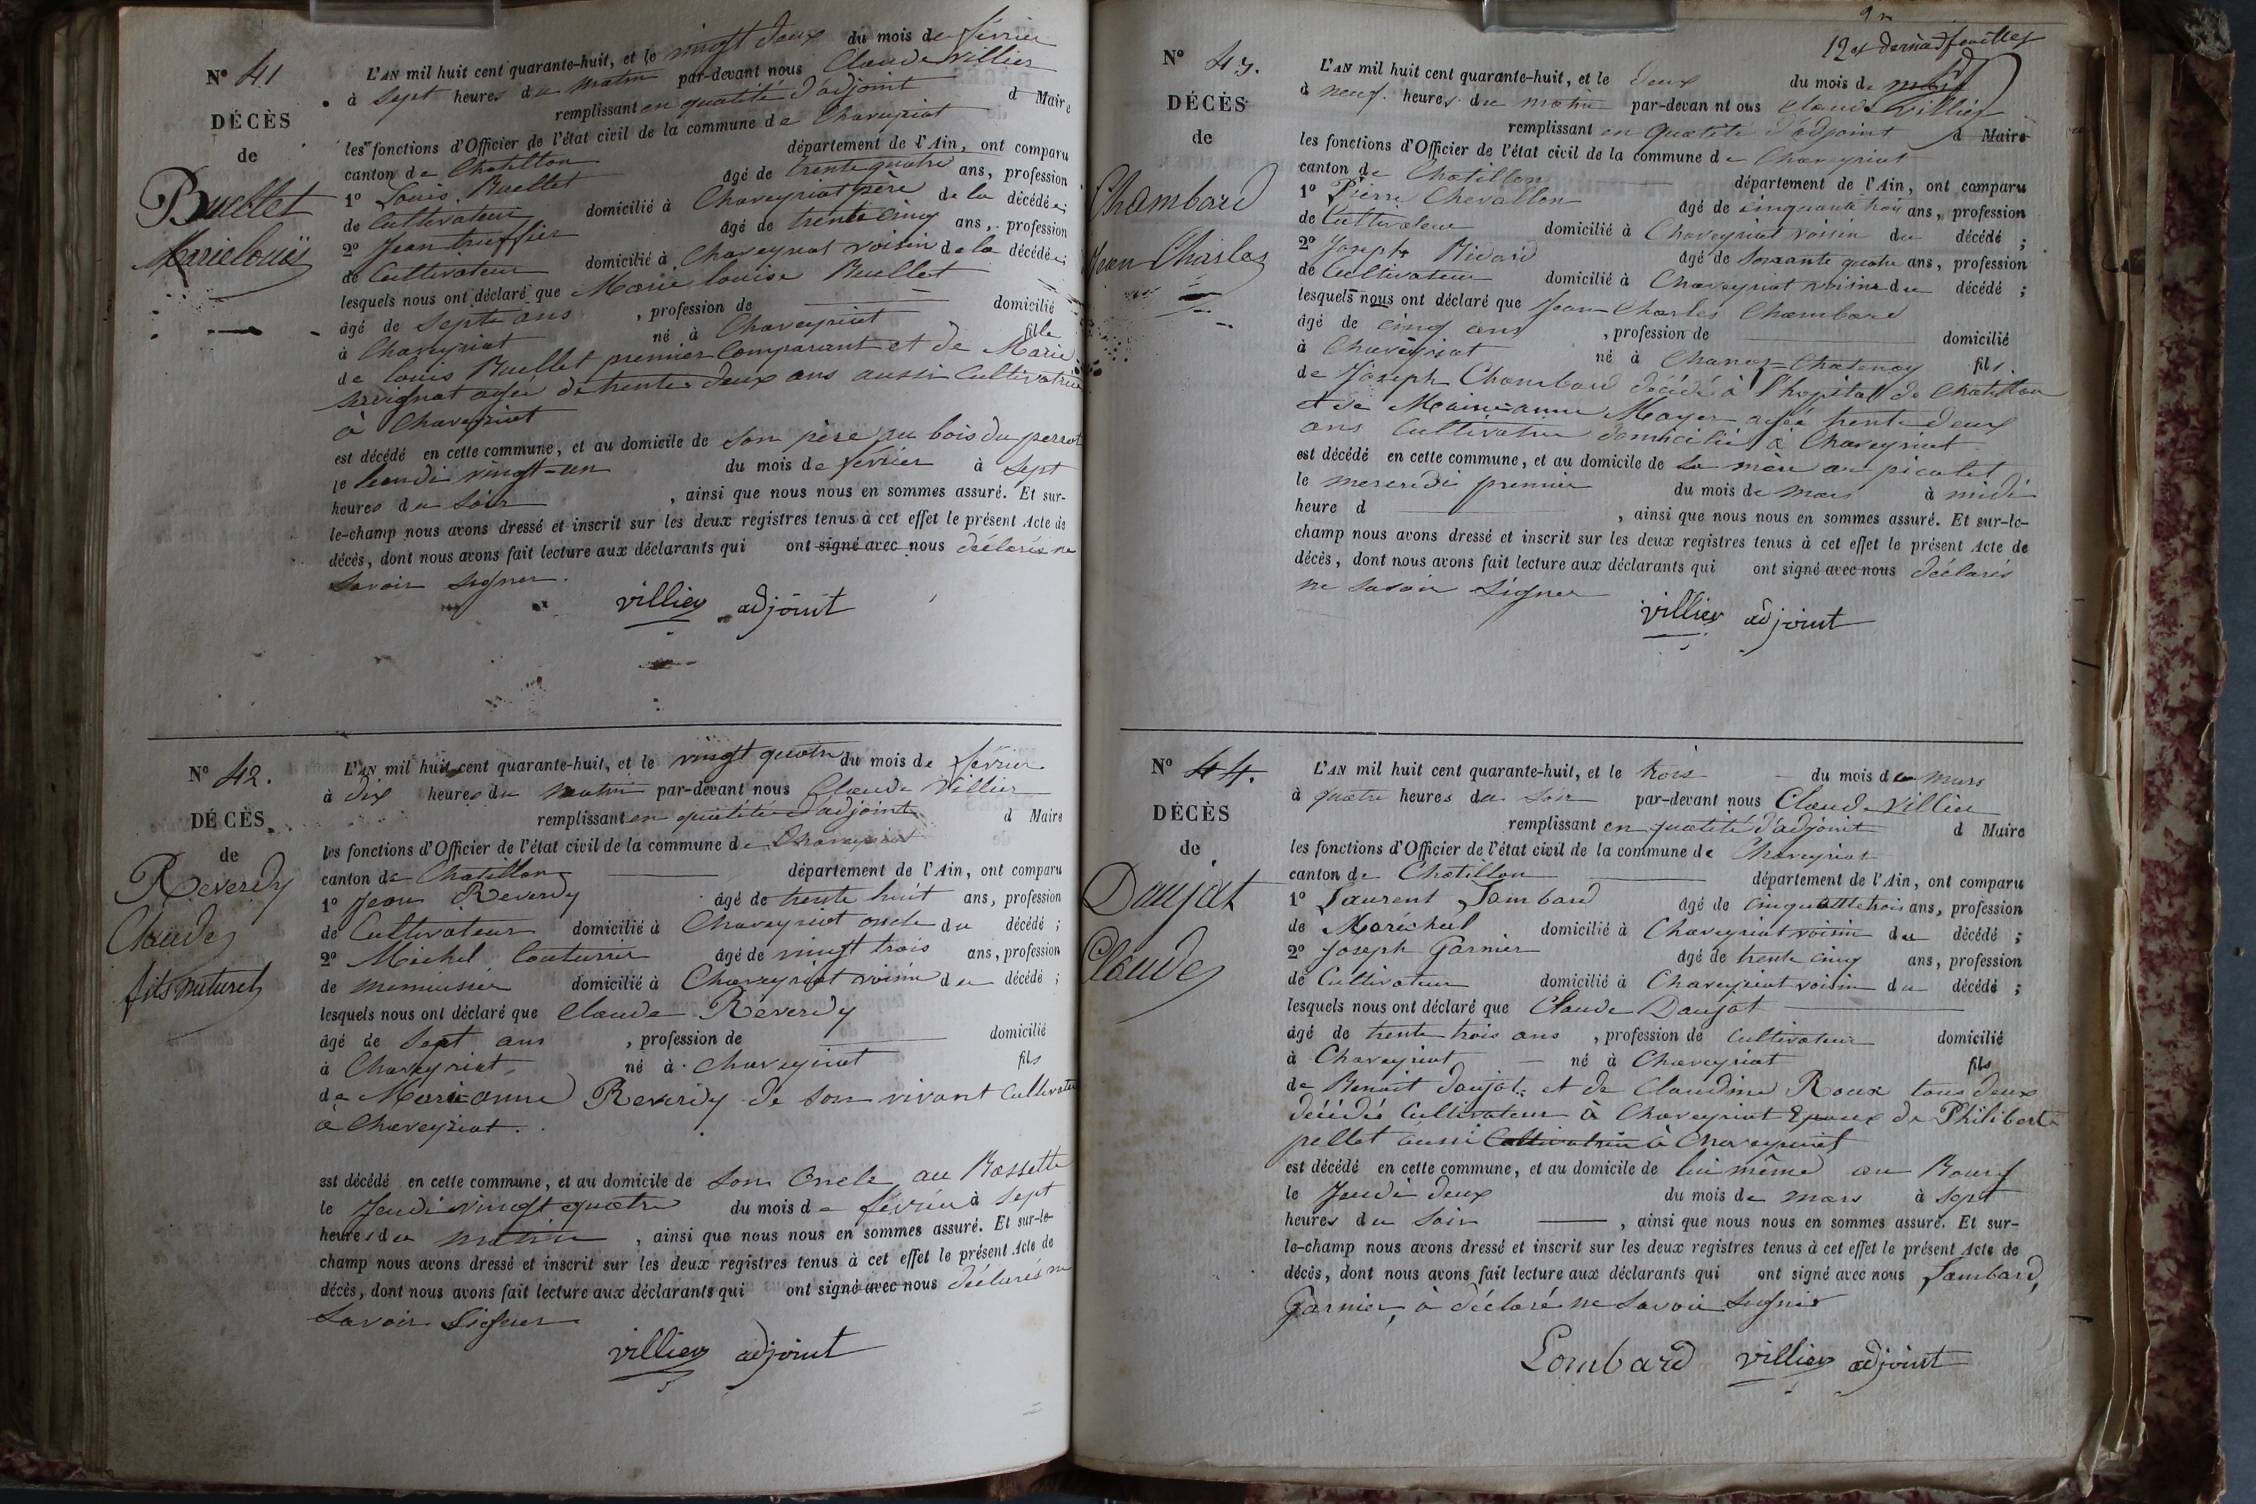 N° 41
DÉCÈS
de
Buellet
Marie louise
L'AN mil huit cent quarante-huit, et le vingt deux du mois de février
à sept heures du matin par-devant nous Claude Villier
remplissant en qualité d'adjoint d Maire
les fonctions d'Officier de l'état civil de la commune de Chaveyriat
canton de Chatillon département de l'Ain, ont comparu
1° Louis Buellet âgé de trente quatre ans, profession
de Cultivateur domicilié à Chaveyriat père de la décédée;
2° Jean truffier âgé de trente cinq ans, profession
de Cultivateur domicilié à Chaveyriat voisin de la décédée;
lesquels nous ont déclaré que Marie louise Buellet
âgé de septe ans , profession de domicilié
à Chaveyriat né à Chaveyriat fille
de louis Buellet premier Comparant et de Marie
agée de trente deux ans aussi Cultivatrice
à Chaveyriat
est décédé en cette commune, et au domicile de son père au bois du perrot
le lundi vingt-un du mois de février à sept
heures du soir , ainsi que nous nous en sommes assuré. Et sur-
le-champ nous avons dressé et inscrit sur les deux registres tenus à cet effet le présent Acte de
décès, dont nous avons fait lecture aux déclarants qui ont signé avec nous déclarés ne
savoir signer.
villier adjoint
N° 42.
DÉCÈS
de
Reverdy
Claude
fils naturel
L'AN mil huit cent quarante-huit, et le vingt quatre du mois de février
à dix heures du matin par-devant nous Claude Villier
remplissant en qualité d'adjoint d Maire
les fonctions d'Officier de l'état civil de la commune de Chaveyriat
canton de Chatillon département de l'Ain, ont comparu
1° Jean Reverdy âgé de trente huit ans, profession
de Cultivateur domicilié à Chaveyriat oncle du décédé;
2° Michel Couturier âgé de vingt trois ans, profession
de menuisier domicilié à Chaveyriat voisin du décédé;
lesquels nous ont déclaré que Claude Reverdy
âgé de Sept ans , profession de domicilié
à Chaveyriat né à Chaveyriat fils
de Marie-anne Reverdy de son vivant Cultivatrice
à Chaveyriat.
est décédé en cette commune, et au domicile de son Oncle au Rossette
le Jeudi vingt quatre du mois de février à sept
heures du matin , ainsi que nous nous en sommes assuré. Et sur-le-
champ nous avons dressé et inscrit sur les deux registres tenus à cet effet le présent Acte de
décès, dont nous avons fait lecture aux déclarants qui ont signé avec nous déclarés ne
Savoir Signer
villier adjoint
12 et feuilles
N° 43.
DÉCÈS
de
Chambard
Jean Charles
L'AN mil huit cent quarante-huit, et le deux du mois de mars
à neuf heures du matin par-devan nt ous Claude Villier
remplissant en qualité d'adjoint d Maire
les fonctions d'Officier de l'état civil de la commune de Chaveyriat
canton de Chatillon département de l'Ain, ont comparu
1° Pierre Chevallon âgé de cinquante trois ans, profession
de Cultivateur domicilié à Chaveyriat voisin du décédé;
2° Joseph âgé de soixante quatre ans, profession
de Cultivateur domicilié à Chaveyriat voisin du décédé;
lesquels nous ont déclaré que Jean Charles Chambard
âgé de cinq ans , profession de domicilié
à Chaveyriat né à Chanoz-Chatenay fils
de Joseph Chambard décédé à l'hopital de Chatillon
et de Marie-anne Mayer agée trente deux
ans Cultivatrice domiciliée à Chaveyriat
est décédé en cette commune, et au domicile de sa mère au picolet
le mercredi premier du mois de mars à midi
heure d , ainsi que nous nous en sommes assuré. Et sur-le-
champ nous avons dressé et inscrit sur les deux registres tenus à cet effet le présent Acte de
décès, dont nous avons fait lecture aux déclarants qui ont signé avec nous déclarés
ne savoir Signer
villier adjoint
N° 44.
DÉCÈS
de
Daujat
Claude
L'AN mil huit cent quarante-huit, et le trois du mois de mars
à quatre heures du soir par-devant nous Claude Villier
remplissant en qualité d'adjoint d Maire
les fonctions d'Officier de l'état civil de la commune de Chaveyriat
canton de Chatillon département de l'Ain, ont comparu
1° Laurent Lombard âgé de cinquante trois ans, profession
de Maréchal domicilié à Chaveyriat voisin du décédé;
2° Joseph Garnier âgé de trente cinq ans, profession
de Cultivateur domicilié à Chaveyriat voisin du décédé;
lesquels nous ont déclaré que Claude Daujat
âgé de trente trois ans , profession de Cultivateur domicilié
à Chaveyriat né à Chaveyriat fils
de Benoit daujat et de Claudine Roux tous deux
décédé Cultivateur à Chaveyriat Epoux de Philiberte
pellet aussi Cultivatrice à Chaveyriat
est décédé en cette commune, et au domicile de lui même au Bourg
le Jeudi deux du mois de mars à sept
heures du Soir , ainsi que nous nous en sommes assuré. Et sur-
le-champ nous avons dressé et inscrit sur les deux registres tenus à cet effet le présent Acte de
décès, dont nous avons fait lecture aux déclarants qui ont signé avec nous Lombard,
Garnier, à déclaré ne Savoir Signer
Lombard villier adjoint